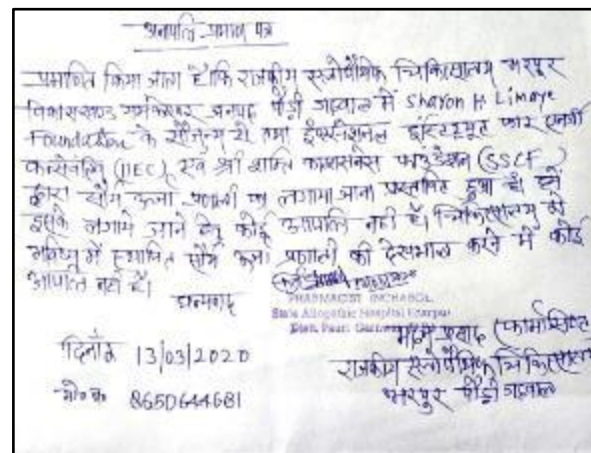 अनापत्ति प्रमाण पत्र
प्रमाणित किया जाता है कि राजकीय एलोपैथिक चिकित्सालय भरपूर
विकासखण्ड जनपद पौड़ी गढ़वाल में Sharon H. Limaye
Foundation के सौजन्य से तथा इंटरनेशनल इंस्टिट्यूट फार एनर्जी
(IIEC), एवं श्री शान्ति फाउंडेशन (SSCF)
द्वारा सौर ऊर्जा प्रणाली का लगाया जाना प्रस्तावित हुआ है। हमें
इसके लगाये जाने हेतु कोई आपत्ति नहीं है। चिकित्सालय को
भविष्य में स्थापित सौर ऊर्जा प्रणाली की देखभाल करने में कोई
आपत्ति नहीं है।
धन्यवाद
PHARMACIST INCHARGE
State Allopathic Hospital
Distt. Pauri
दिनाँक 13/03/2020
मो०न० 8650644681
प्रसाद (फार्मासिस्ट
राजकीय एलोपैथिक चिकित्सालय
भरपूर पौड़ी गढ़वाल